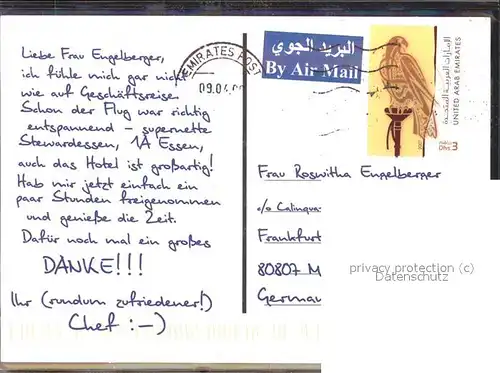 Liebe Frau Engelberger,
ich fühle mich gar nicht
wie auf Geschäftsreise.
Schon der Flug war richtig
entspannend – supernette
Stewardessen, 1A Essen,
auch das Hotel ist großartig!
Hab mir jetzt einfach ein
paar Stunden freigenommen
und genieße die Zeit.
Dafür noch mal ein großes
DANKE!!!
Ihr (rundum zufriedener!)
Chef :–)
EMIRATES POST
09.04
البريد الجوي
By Air Mail
الإمارات العربية المتحدة
UNITED ARAB EMIRATES
Dhs 3
Frau Roswitha Engelberger
c/o Calinqua
Frankfurt
80807 M
German
privacy protection (c)
Datenschutz